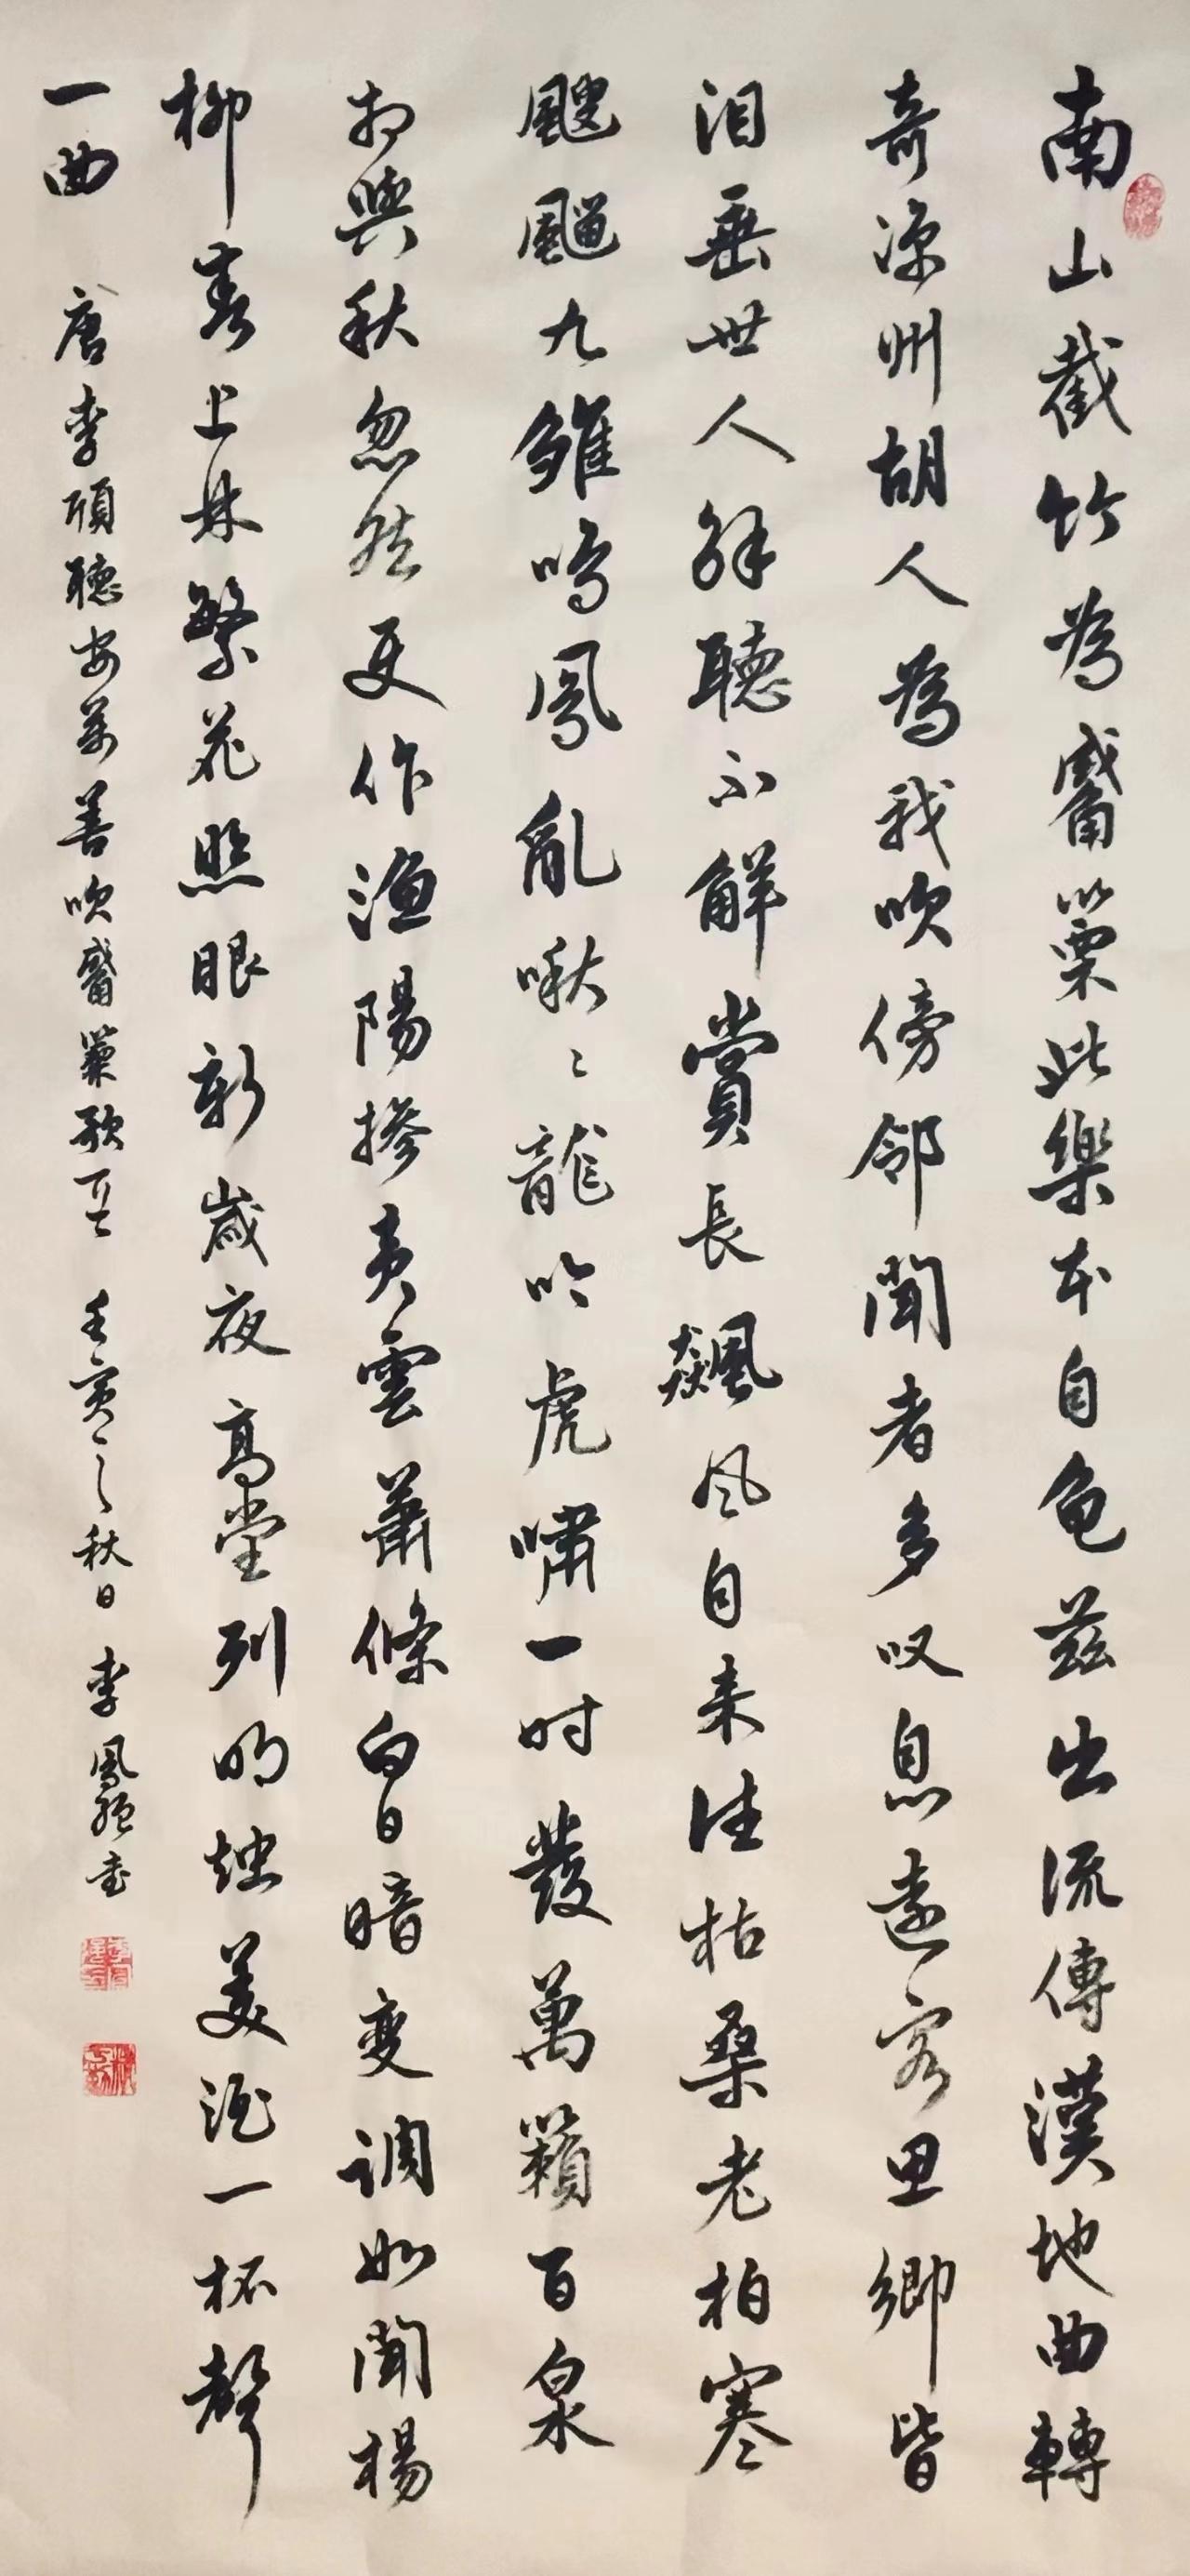 南山截竹為觱篥此樂本自龟茲出流傳漢地曲轉
奇凉州胡人為我吹傍邻聞者多叹息遠客思鄉皆
泪垂世人解聽不解賞長飆风自来往枯桑老柏寒
颼飀九雏鳴鳳亂啾々龍吟虎嘯一时發萬籟百泉
相與秋忽然更作渔陽掺黄雲蕭條白日暗变调如聞楊
柳春上林繁花照眼新歲夜高堂列明烛美酒一杯聲
一曲 唐李頎聽安萬善吹觱篥歌 壬寅之秋日 李鳳 书